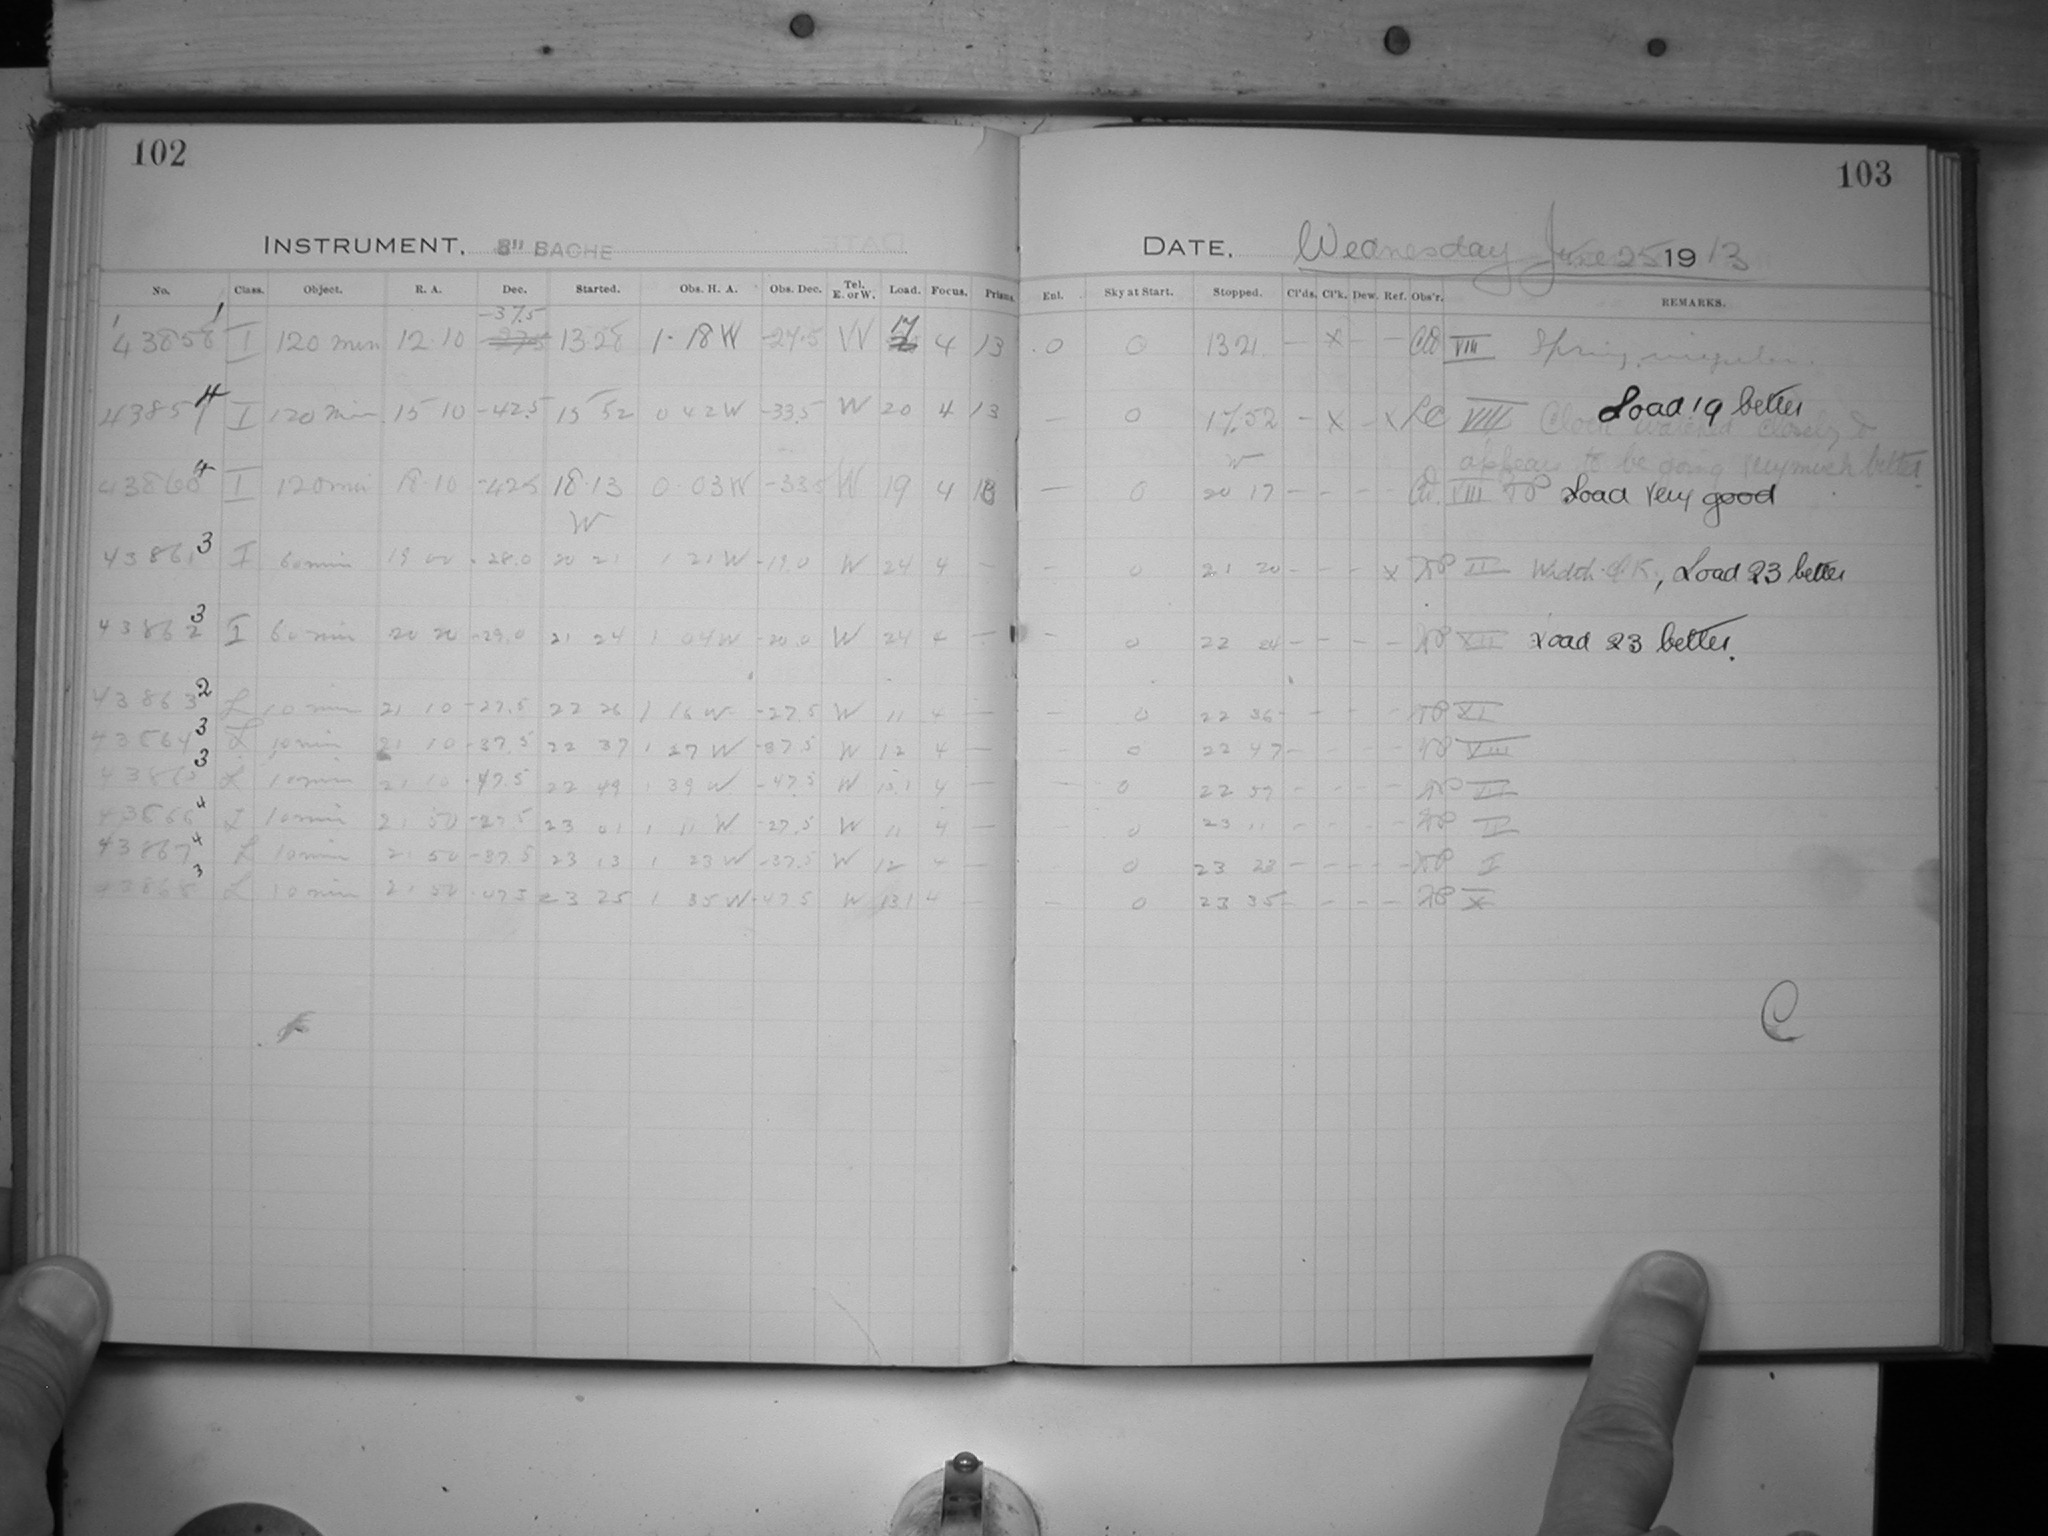 102
103
INSTRUMENT. 8" BACHE
DATE. Wednesday June 25 1913
No. Class. Object. R. A. Dec. Started. Obs. H. A. Obs. Dec. Tel. E. or W. Load. Focus. Prisms. Enl. Sky at Start. Stopped. Cl'ds. Cl'k. Dew. Ref. Obs'r. REMARKS.
-37.5
I 120 min 12 10 13 28 1 18 W W 17 4 13 0 0 13 21 - x - - VIII Spring irregular.
Load 19 better
4385 4 I 120 min 15 10 -42.5 15 52 0 42 W -33.5 W 20 4 13 - 0 17.52 - x - x VIII Clock watched closely &
appears to be going very much better
43860 4 I 120 min 18 10 -42.5 18 13 0 03 W -33.5 W 19 4 13 - 0 20 17 - - - VIII Load very good
W
43861 3 I 60 min 19 00 -28.0 20 21 1 21 W -19.0 W 24 4 - - 0 21 20 - - - x Width O.K., Load 23 better
43862 3 I 60 min 20 20 -29.0 21 24 1 04 W -20.0 W 24 4 - - 0 22 24 - - - - XII Load 23 better.
43863 2 L 10 min 21 10 -27.5 22 26 1 16 W -27.5 W 11 4 - - 0 22 36 - - - - XI
43864 3 L 10 min 21 10 -37.5 22 37 1 27 W -37.5 W 12 4 - - 0 22 47 - - - - VIII
43865 3 L 10 min 21 10 -47.5 22 49 1 39 W -47.5 W 13.1 4 - - 0 22 59 - - - -
43866 4 L 10 min 21 50 -27.5 23 01 1 11 W -27.5 W 11 4 - - 0 23 11 - - - - II
43867 4 L 10 min 21 50 -37.5 23 13 1 23 W -37.5 W 12 4 - - 0 23 23 - - - - I
43868 3 L 10 min 21 50 -47.5 23 25 1 35 W -47.5 W 13.1 4 - - 0 23 35 - - - - X
C